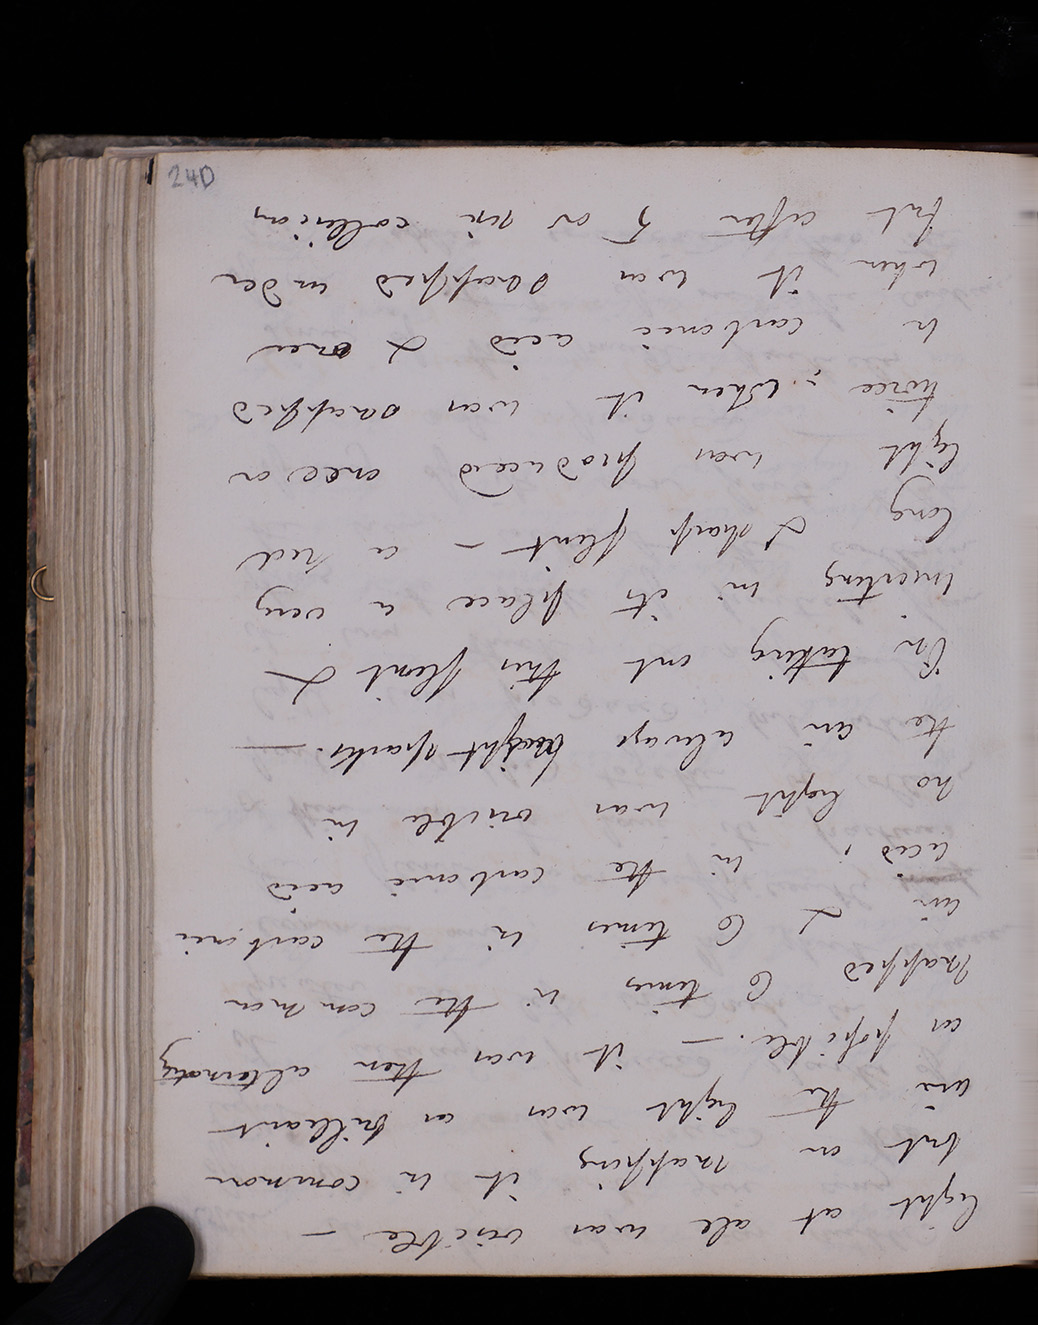 240
light at all was visible —
but on snapping it in common
air the light was as brilliant
as possible. — it was then alternately
snapped 6 times in the common
air & 6 times in the carbonic
acid, in the carbonic acid
no light was visible in
the air always bright sparks. —
On taking out this flint &
inserting in its place a very
long & sharp flint — a red
light was produced once or
twice when it was snapped
in carbonic acid & once
when it was snapped under
but after 5 or six collisions